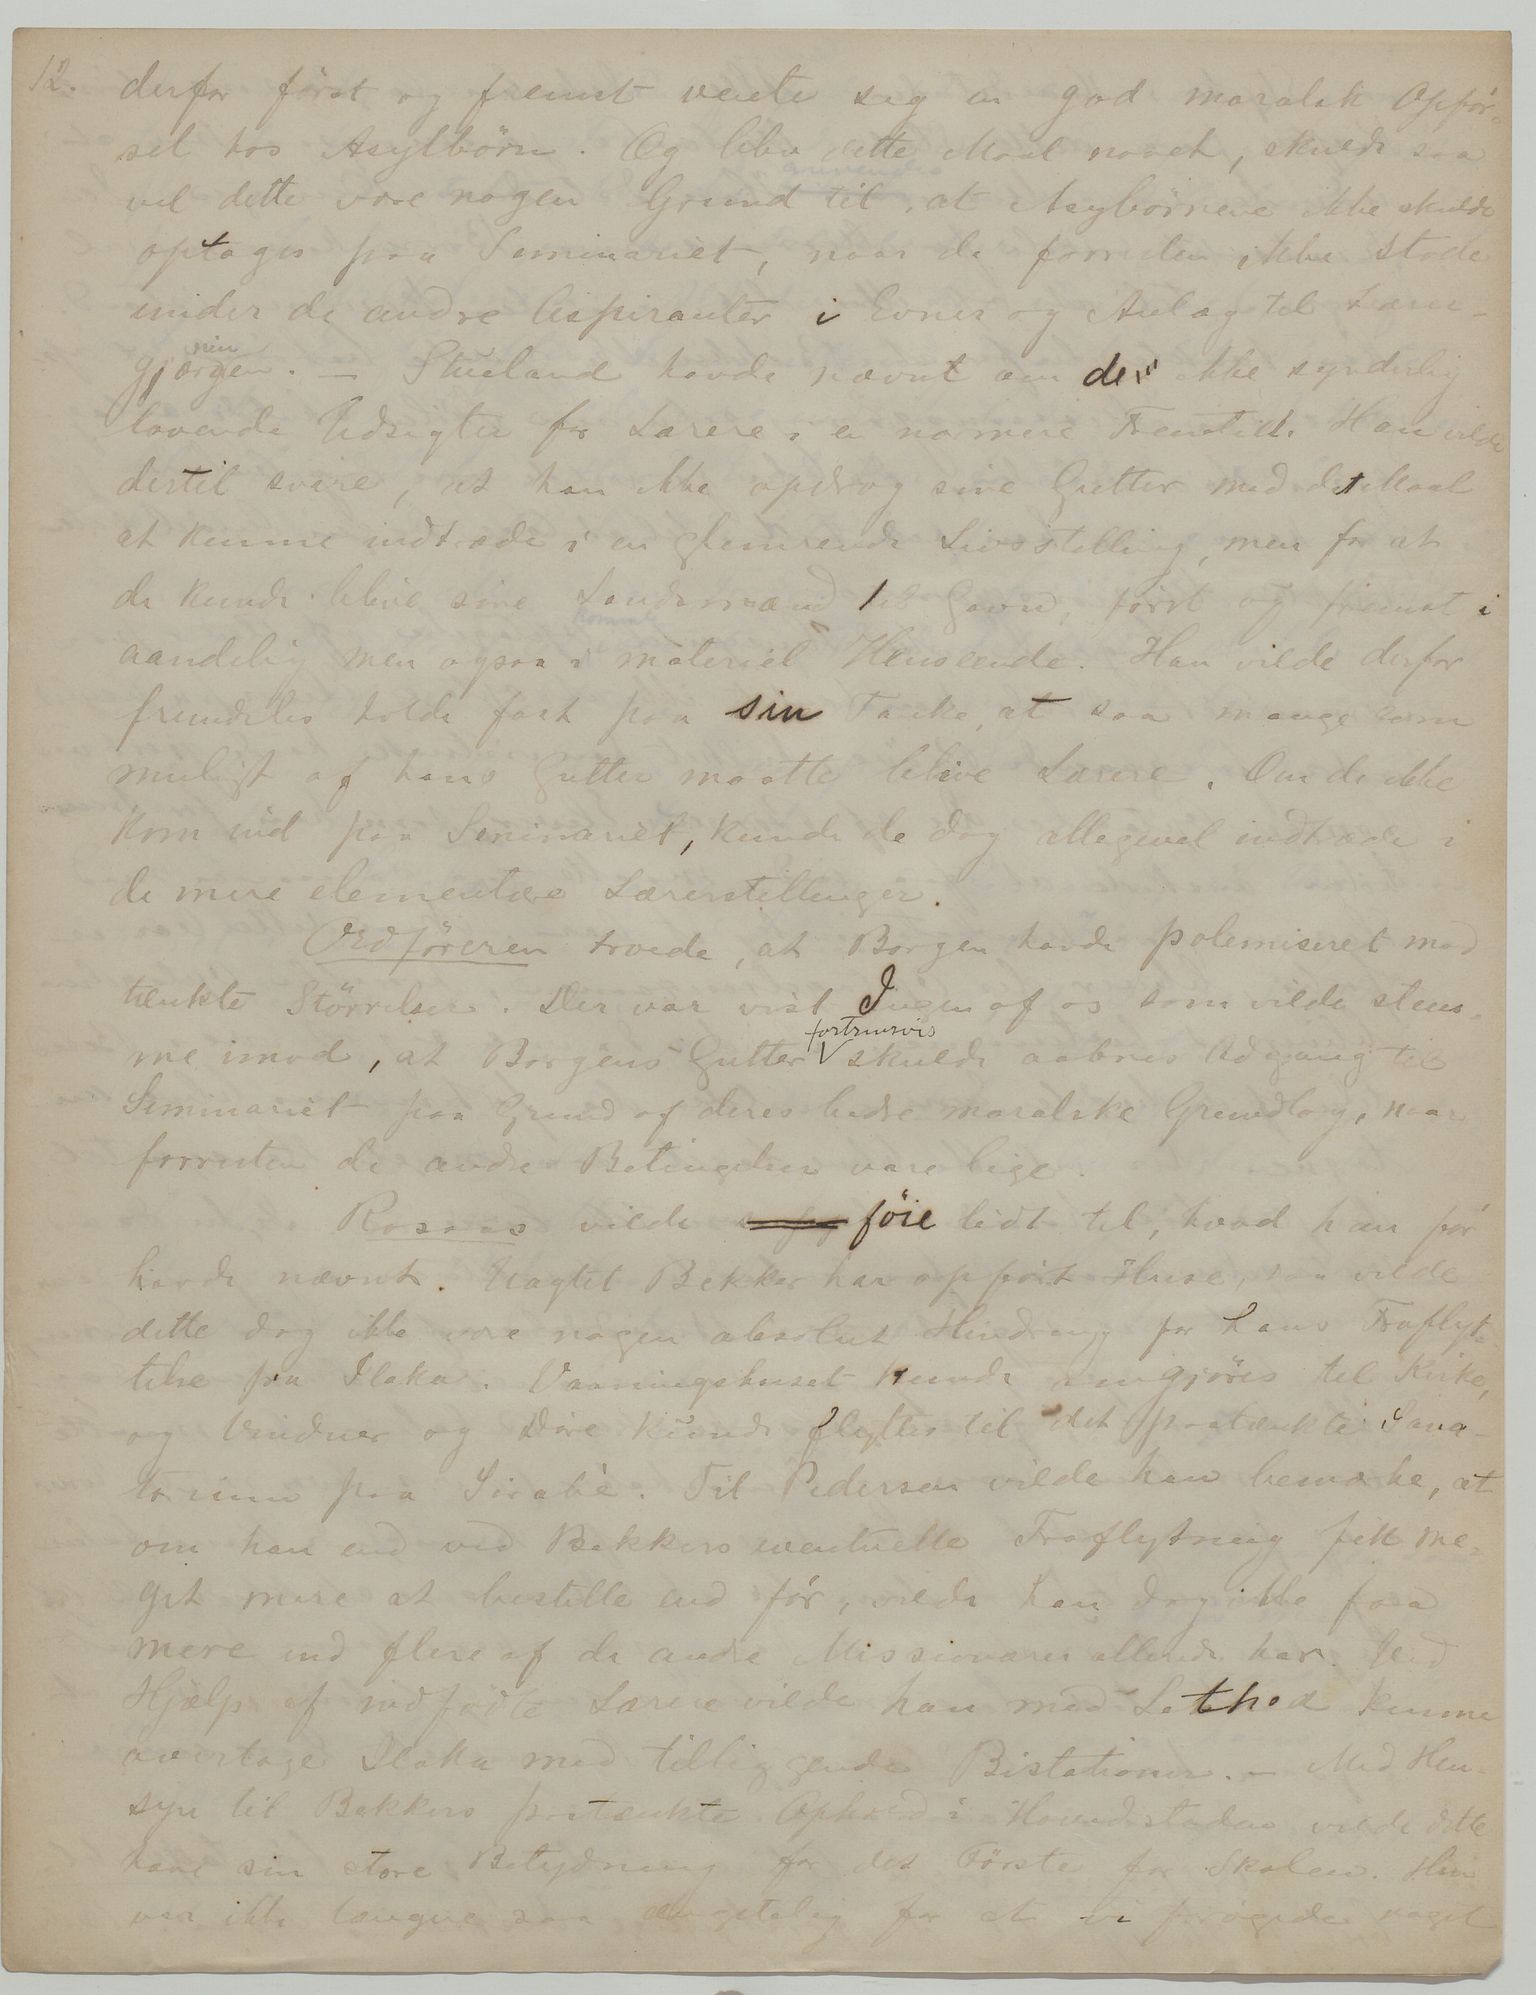 12. derfor først og fremst vente sig en god moralsk Opför-
sel hos Asylbörn. Og blev dette Maal naaet, skulde saa
vel dette være nogen Grund til, at Asylbörnene ikke skulde
optages paa Seminariet, naar de forresten ikke stode
under de andre Aspiranter i Evner og Anlæg til Lærer-
gjærgen. — Stueland havde nævnt om de ikke synderlig
lovende Udsigter for Lærere i en nærmere Fremtid. Han vilde
dertil svare, at han ikke opdrog sine Gutter med det Maal
at kunne indtræde i en glimrende Livsstilling, men for at
de kunde blive sine Landsmænd til Gavn, først og fremst i
aandelig men ogsaa i materiel Henseende. Han vilde derfor
fremdeles holde fast paa sin Tanke, at saa mange som
muligt af hans Gutter maatte blive Lærere. Om de ikke
kom ind paa Seminariet, kunde de dog allegevel indtræde i
de mere elementære Lærerstillinger.
Ordföreren troede, at Borgen havde polemiseret mod
tænkte Störrelser. Der var vist Ingen af os som vilde stem-
me imod, at Borgens Gutter fortrinsvis skulde aabnes Adgang til
Seminariet paa Grund af deres bedre moralske Grundlag, naar
forresten de andre Betingelser vare lige.
Rosaas vilde föie lidt til, hvad han för
havde nævnt. Uagtet Bekker har opfört Huse, saa vilde
dette dog ikke være nogen absolut Hindring for hans Fraflyt-
telse fra Ilaka. Vaaningshuset kunde omgjöres til Kirke,
og Vinduer og Döre kunde flyttes til det paatænkte Sana-
torium paa Sirabé. Til Pedersen vilde han bemærke, at
om han end ved Bekkers eventuelle Fraflytning fik me-
get mere at bestille end för, vilde han dog ikke faa
mere end flere af de andre Missionærer allerede har. Ved
Hjælp af indfödte Lærere vilde han med Lethed kunne
overtage Ilaka med tilliggende Bistationer. — Med Hen-
syn til Bekkers paatænkte Ophold i Hovedstaden vilde dette
have sin store Betydning for det Förste for Skolen. Han
var ikke længere saa ængstelig for at vi forögede noget